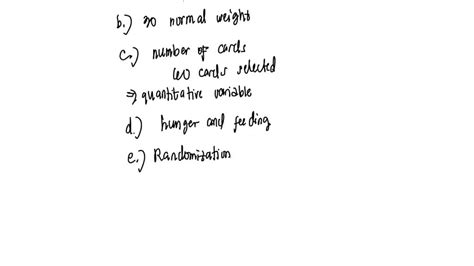 b.) 30 normal weight
c.) number of cards
40 cards selected
⇒ quantitative variable
d.) hunger and feeding
e.) Randomization